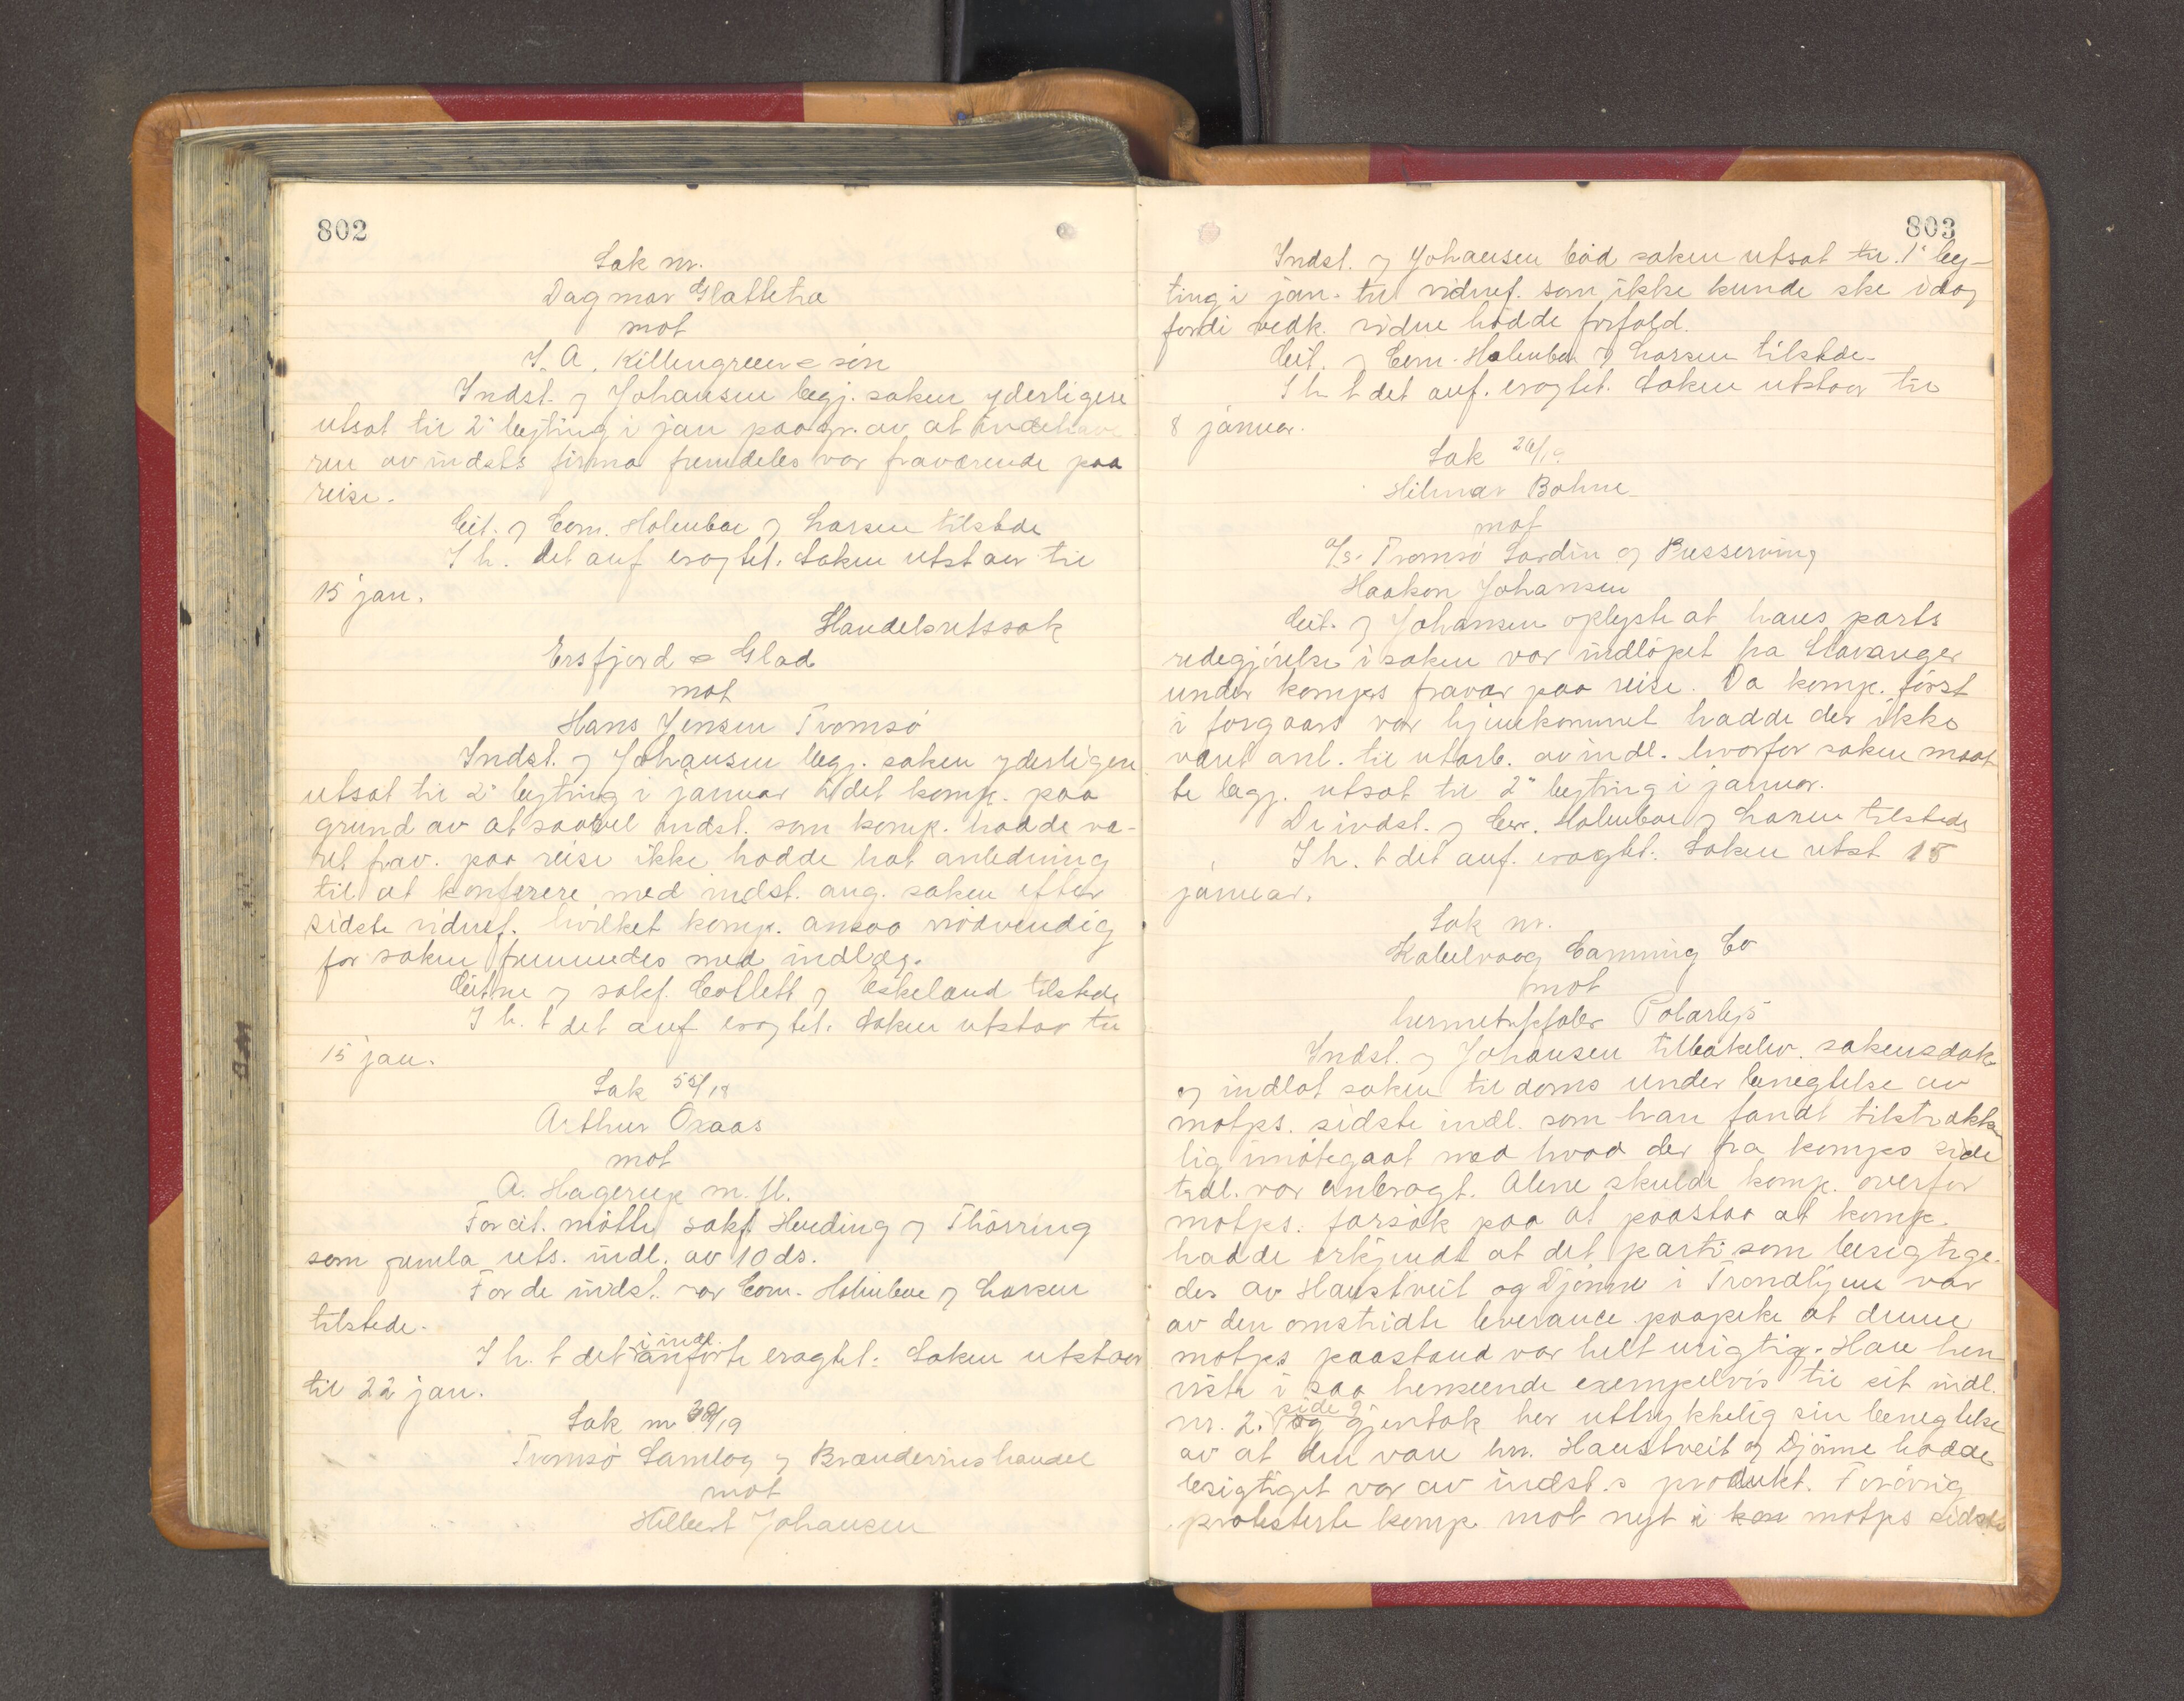 802
Sak nr.
Dagmar Slettetra
mot
I. A. Killengreen & søn
Indst. og Johansen begj. saken yderligere
utsat til 2' bejting i jan paa gr. av at indehave
ren av indsts firma fremdeles var fraværende paa
reise.
Cit. og Com. Holmboe og Larsen tilstede
I h. det anf eragtet: Saken utstaar til
15 jan.
Handelsretssak
Ersfjord & Glad
mot
Hans Jensen Tromsø
Indst. og Johansen begj. saken yderligere
utsat til 2' bejting i januar idet komp. paa
grund av at saavel indst. som komp. hadde væ-
ret frav. paa reise ikke hadde hat anledning
til at konferere med indst. ang. saken efter
sidste vidnef. hvilket komp. ansaa nødvendig
før saken fremmedes med indlæg.
Cit.ne og sakf. Collett og Eskeland tilstede
I h. t det anf eragtet: Saken utstaar til
15 jan.
Sak 55/18
Arthur Osaas
mot
A. Hagerup m. fl.
For cit. møtte sakf. Harding og Thørring
som fremla rets. indl. av 10 ds.
For de indst. var Com. Holmboe og Larsen
tilstede.
I h. t det i indl. anførte eragtet: Saken utstaar
til 22 jan.
Sak nr 38/19
Tromsø Samlag og Brændevinshandel
mot
Hilbert Johansen
803
Indst. og Johansen bød saken utsat til 1' bej-
ting i jan. til vidnef. som ikke kunde ske idag
fordi vedk. vidne hadde forfald.
Cit. og Com. Holmboe og Larsen tilstede.
I h t det anf. eragtet: Saken utstaar til
8 januar.
Sak 26/19
Hilmar Bohne
mot
A/S. Tromsø Sardin og Preserving
Haakon Johansen
Cit. og Johansen oplyste at hans parts
redegjørelse i saken var indløpet fra Stavanger
under komps fravær paa reise. Da komp. først
i forgaars var hjemkommet hadde der ikke
været anl. til utarb. av indl. hvorfor saken maat
te begj. utsat til 2" bejting i januar.
De indst. og Com. Holmboe og Larsen tilstede
I h. t det anf. eragtet: Saken utst 15
januar.
Sak nr.
Kabelvaag Canning Co
mot
hermetikfabr Polarlys
Indst. og Johansen tilbakelev. sakens dok
og indlot saken til doms under benegtelse av
motps. sidste indl. som han fandt tilstrække
lig imøtegaat med hvad der fra komps side
tidl. var anbragt. Alene skulde komp. overfor
motps. forsøk paa at paastaa at komp.
hadde erkjendt at det parti som besigtige-
des av Haustveit og Djønne i Trondhjem var
av den omstridte leverance paapeke at denne
motps paastand var helt urigtig. Han hen
viste i saa henseende exempelvis til sit indl.
nr. 2. side 2 og gjentok her uttrykkelig sin benegtelse
av at den vare hr. Haustveit og Djønne hadde
besigtiget var av indst.s produkt. Forøvrig
protesterte komp. mot nyt i motps sidste